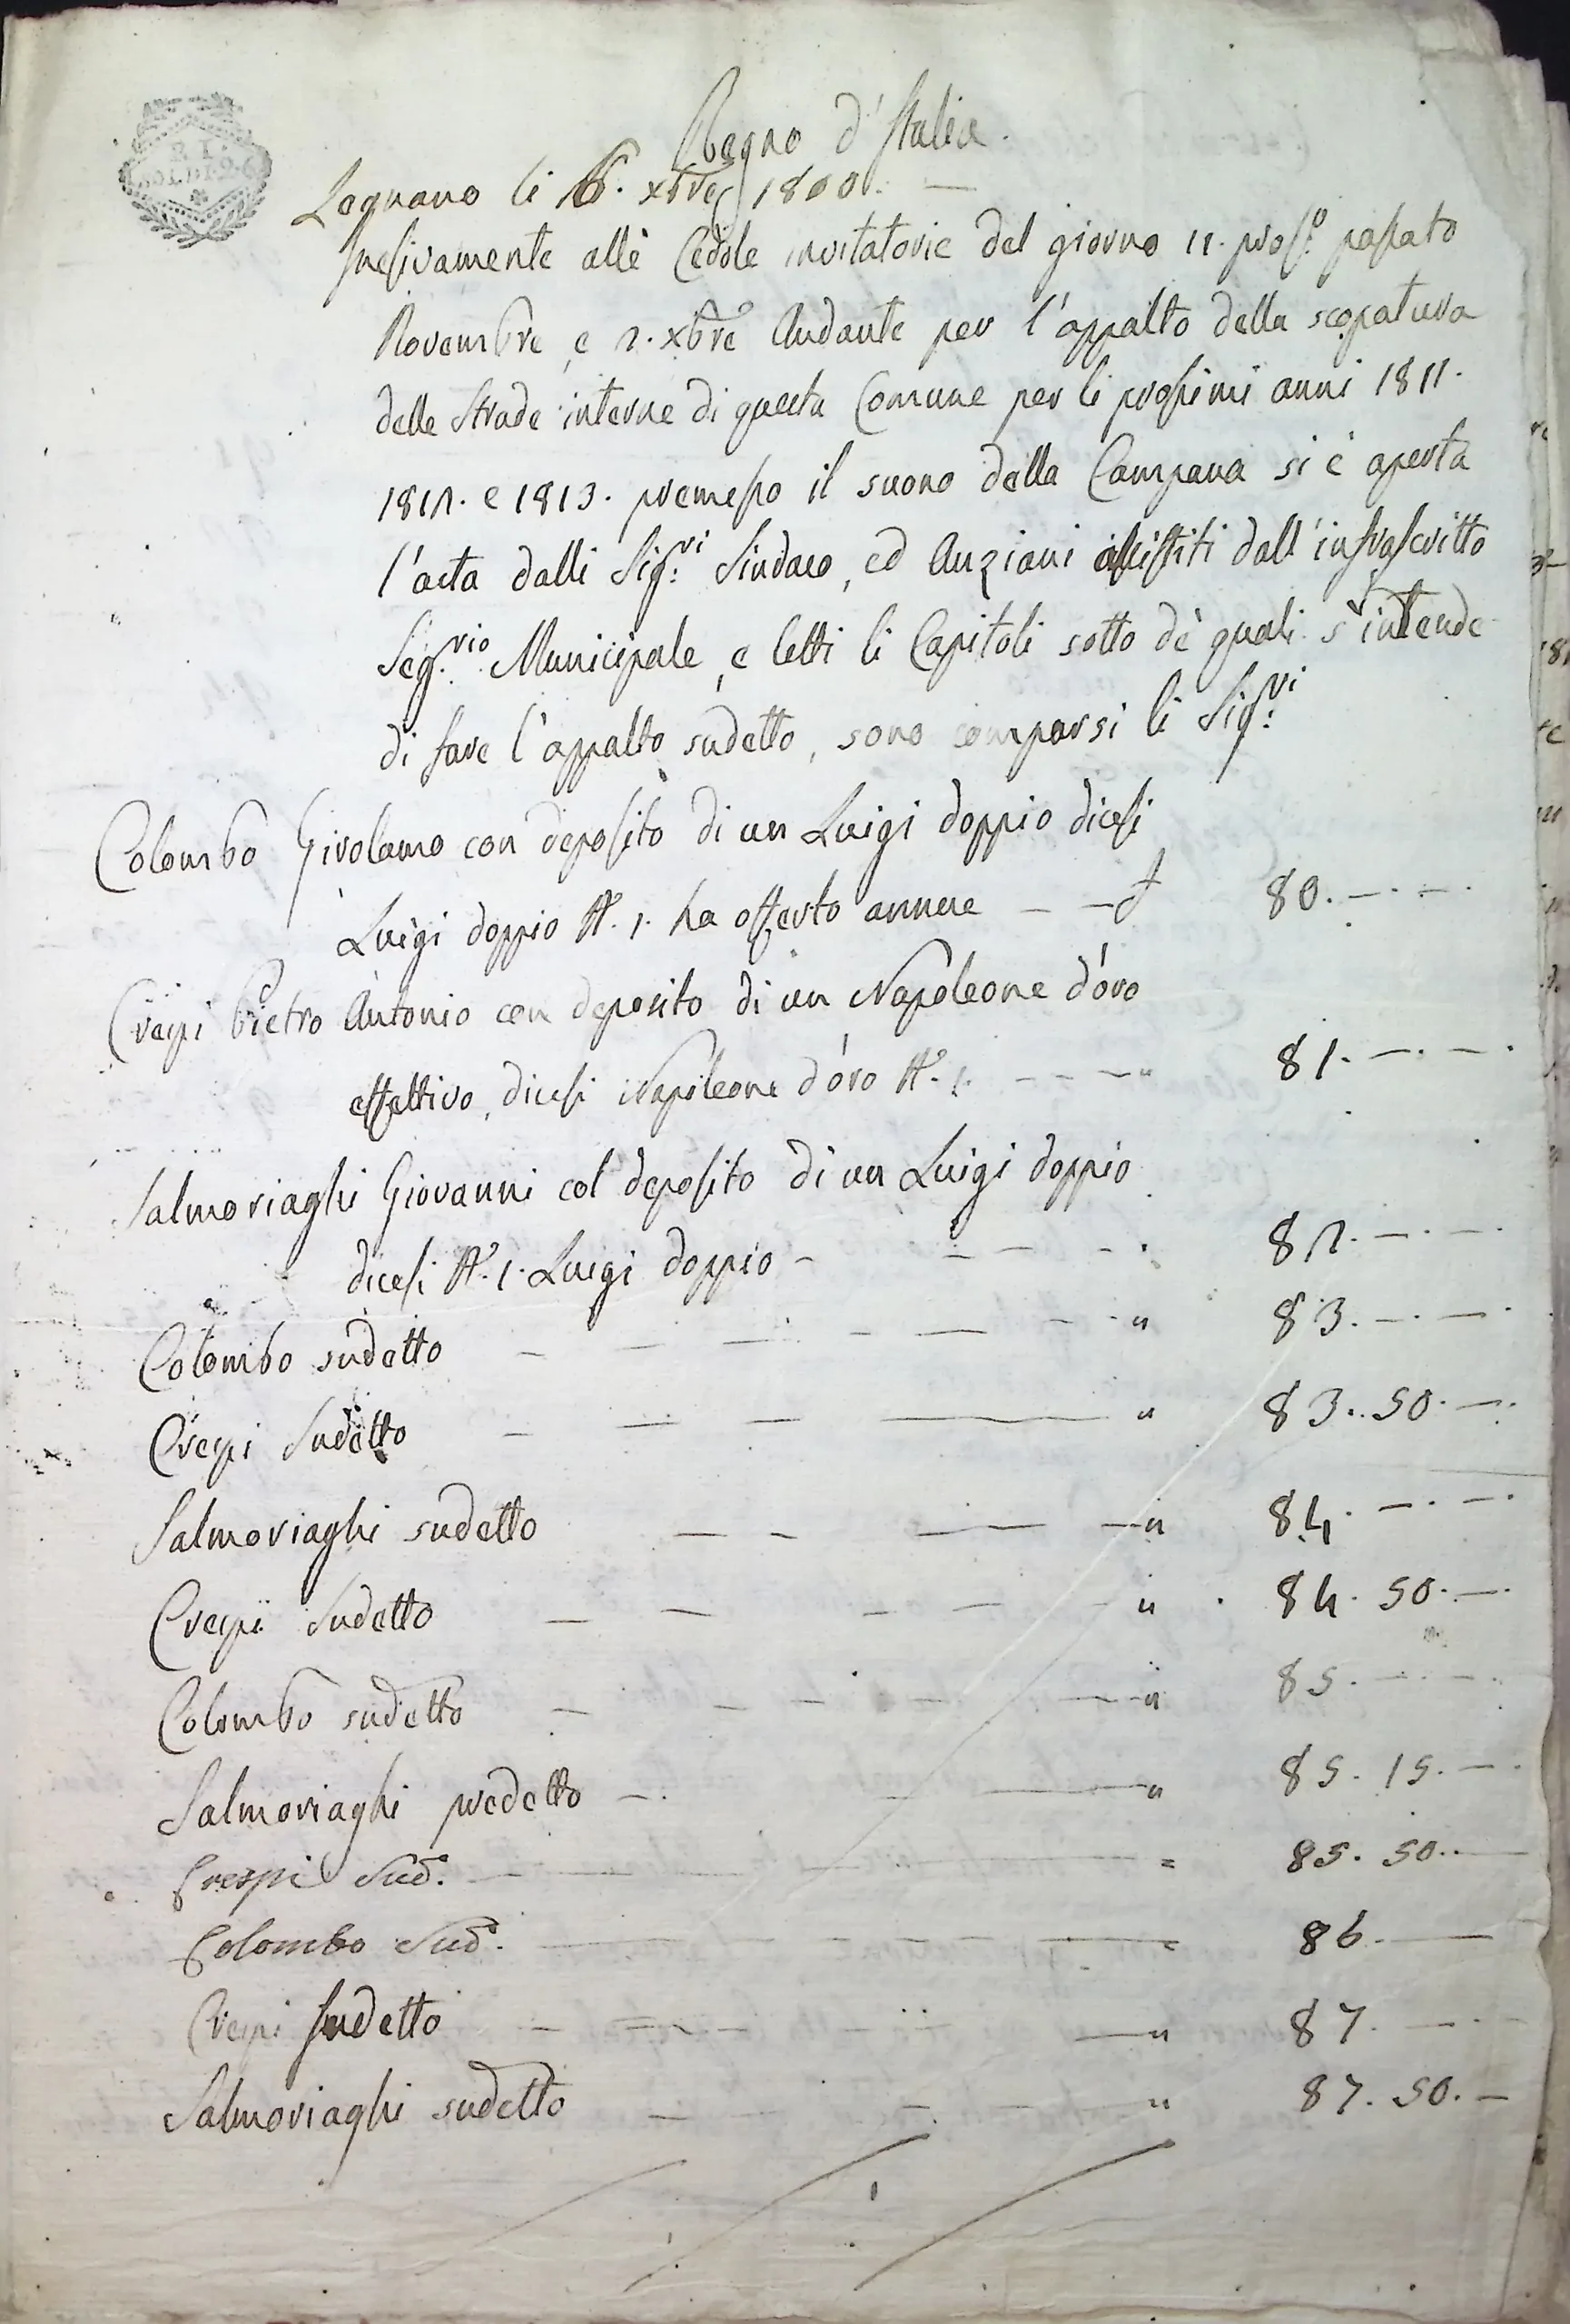 Regno d'Italia.
Legnano li 6. xbre 1800.
Inesivamente alle Cedole invitatorie del giorno 11. pross.o passato
Novembre, e 2. xbre Andante per l'appalto della scopatura
delle Strade interne di questa Comune per li prossimi anni 1811.
1812. e 1813. premesso il suono della Campana si è aperta
l'asta dalli Sig.ri Sindaco, ed Anziani assistiti dall'infrascritto
Seg.rio Municipale, e letti li Capitoli sotto de' quali s'intende
di fare l'appalto sudetto, sono comparsi li Sig.ri
Colombo Girolamo con deposito di un Luigi doppio dicesi
Luigi doppio N. 1. ha offerto annue 80. — . — .
Crespi Pietro Antonio con deposito di un Napoleone d'oro
effettivo, dicesi Napoleone d'oro N. 1. — — — " 81. — . — .
Salmoriaghi Giovanni col deposito di un Luigi doppio
dicesi N. 1. Luigi doppio — — — 82. — . —
Colombo sudetto — — — " 83. — . — .
Crespi Sudetto — — — " 83. 50. — .
Salmoriaghi sudetto — — — " 84. — . — .
Crespi Sudetto — — — " 84. 50. — .
Colombo sudetto — — — " 85. — . — .
Salmoriaghi predetto — — — " 85. 15. — .
Crespi Sud.o — — — = 85. 50. —
Colombo Sud.o — — — = 86. —
Crespi Sudetto — — — " 87. — . —
Salmoriaghi sudetto — — — " 87. 50. —